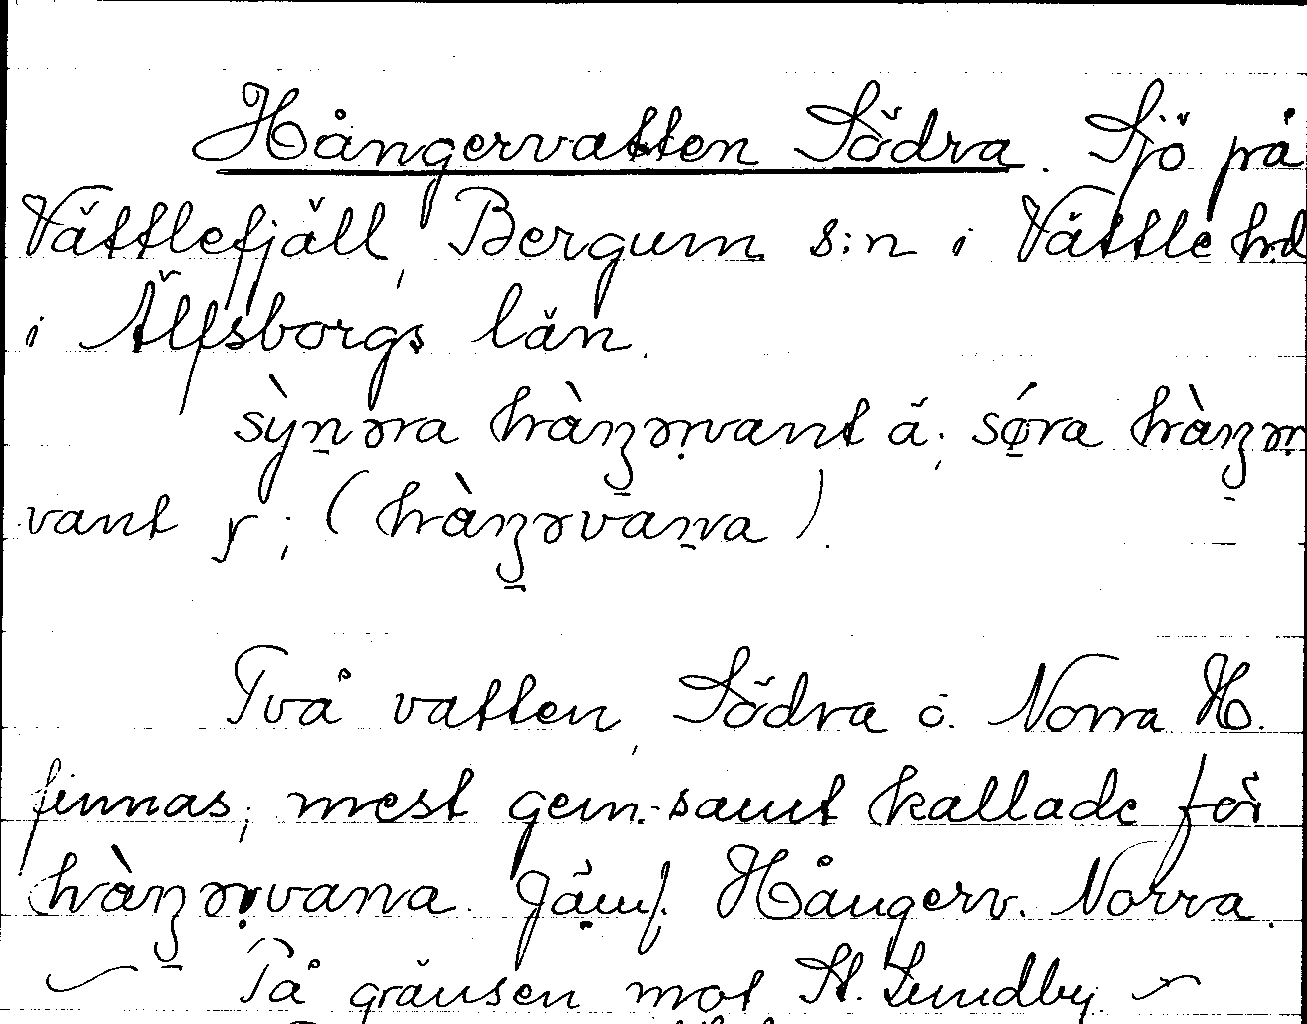 Hångervatten Södra. Sjö på
Vättlefjäll, Bergum s:n i Vättle hd
i Älfsborgs län.
sỳnəra hàŋərvant ä; sǿra hàŋər
vant y; (hàŋərvana).
Två vatten, Södra o. Norra H.
finnas; mest gem.-samt kallade för
hàŋərvana. Jämf. Hångerv. Norra.
På gränsen mot St. Lundby.